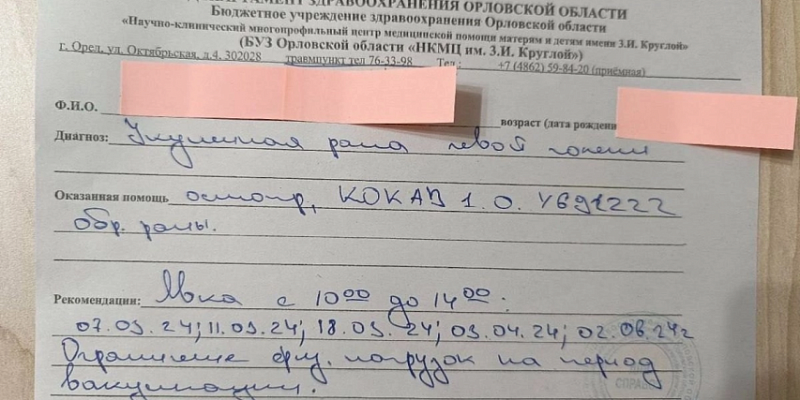 ДЕПАРТАМЕНТ ЗДРАВООХРАНЕНИЯ ОРЛОВСКОЙ ОБЛАСТИ
Бюджетное учреждение здравоохранения Орловской области
«Научно-клинический многопрофильный центр медицинской помощи матерям и детям имени З.И. Круглой»
(БУЗ Орловской области «НКМЦ им. З.И. Круглой»)
г. Орел, ул. Октябрьская, д.4, 302028 травмпункт тел 76-33-98 Тел.: +7 (4862) 59-84-20 (приёмная)
Ф.И.О. возраст (дата рождени
Диагноз: Укушенная рана левой голени
Оказанная помощь осмотр, КОКАВ 1.0. У691222
обр. раны.
Рекомендации: Явка с 10⁰⁰ до 14⁰⁰:
07.03.24; 11.03.24; 18.03.24; 03.04.24; 02.06.24г
Ограничение физ. нагрузок на период
вакцинации.
СПРАВ